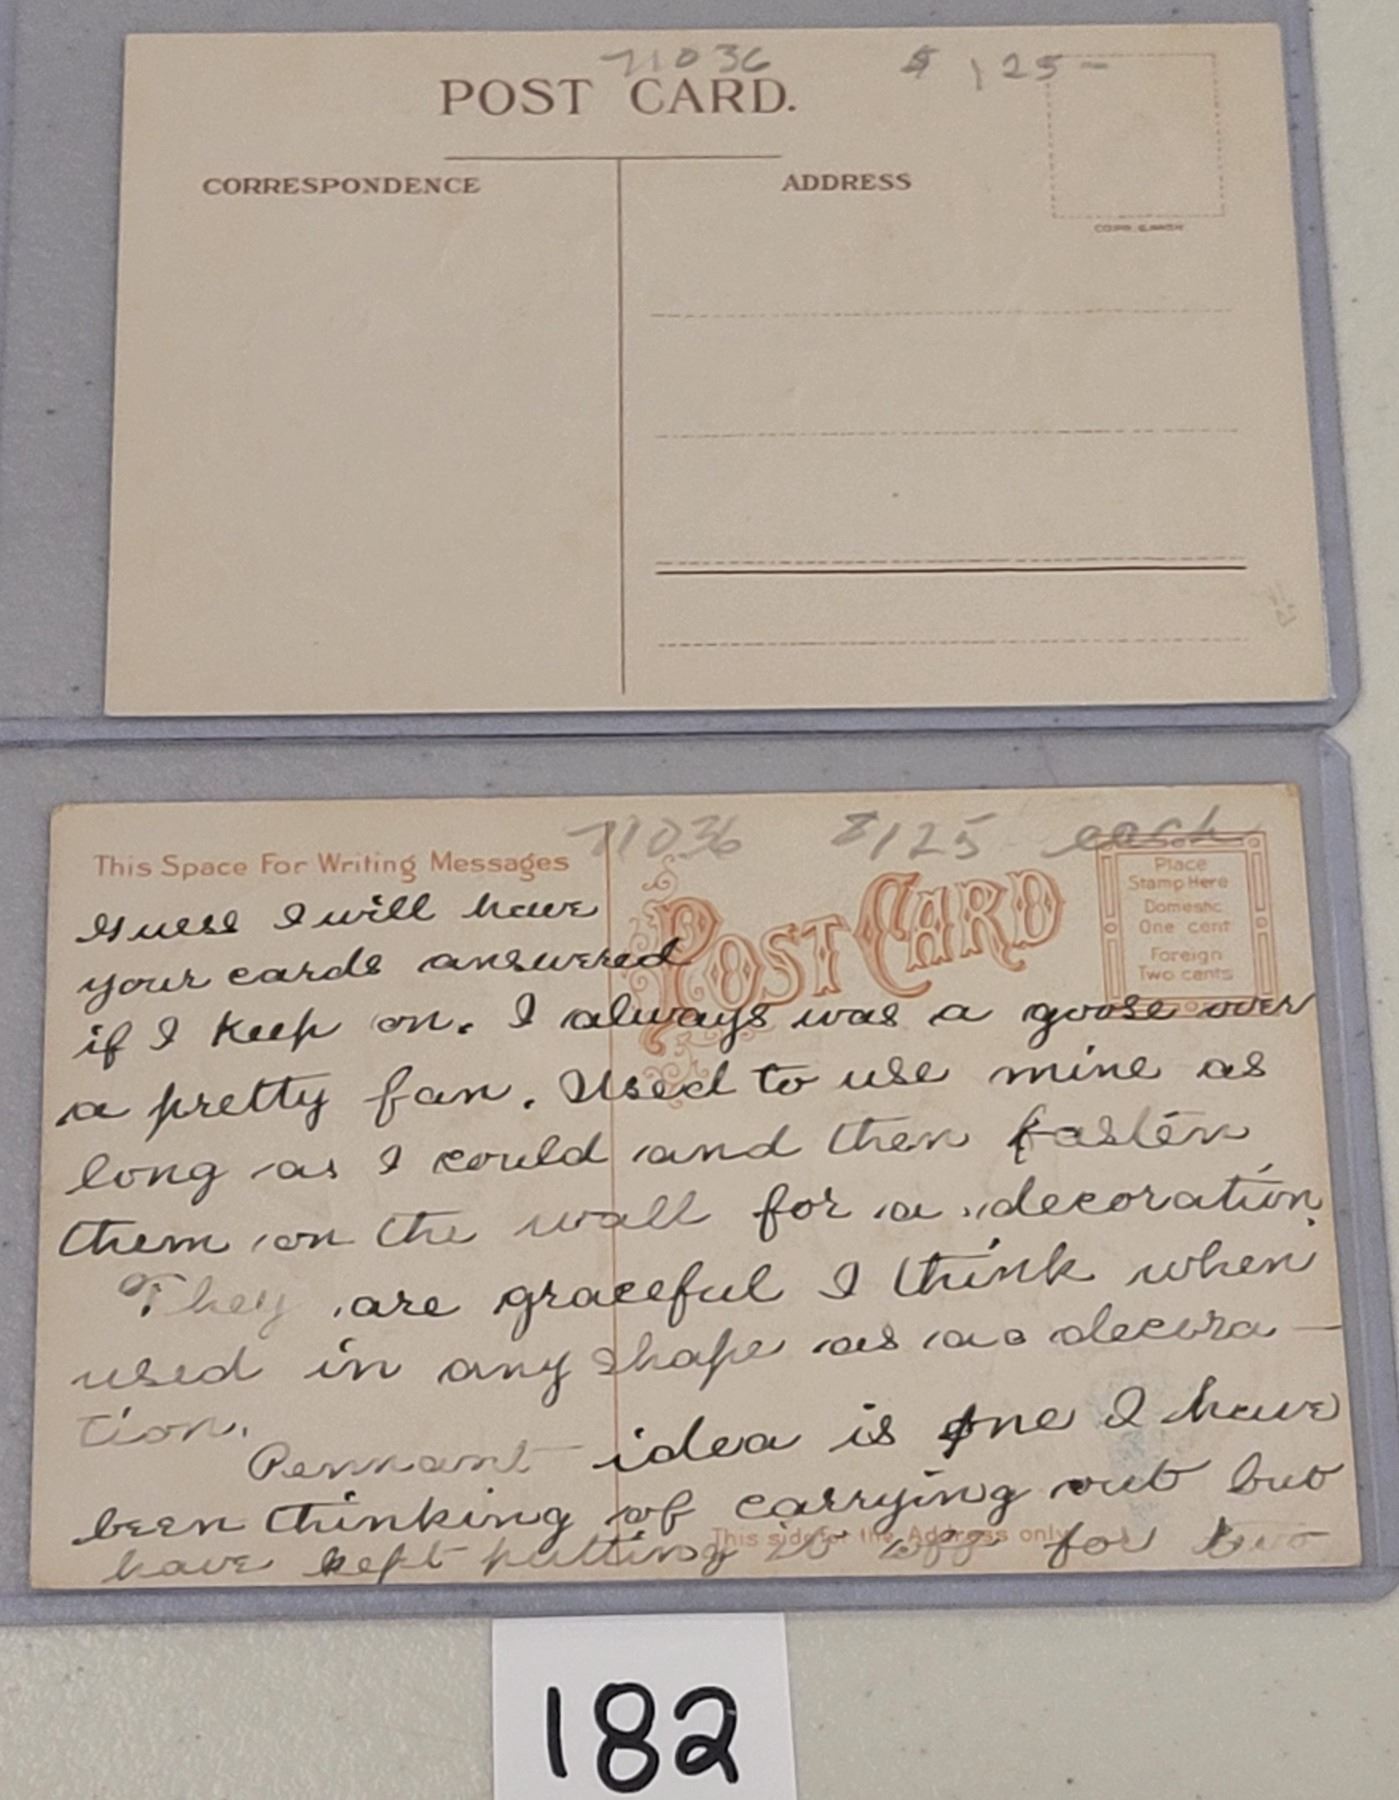 71036 $125-
POST CARD.
CORRESPONDENCE
ADDRESS
71036 $125 each
This Space For Writing Messages
POST CARD
Place
Stamp Here
Domestic
One cent
Foreign
Two cents
Guess I will have
your cards answered
if I keep on. I always was a goose over
a pretty fan. Used to use mine as
long as I could and then fasten
them on the wall for a decoration.
They are graceful I think when
used in any shape as a decora-
tion.
Pennant idea is one I have
been thinking of carrying out but
This side for the Address only
have kept putting it off for two
182